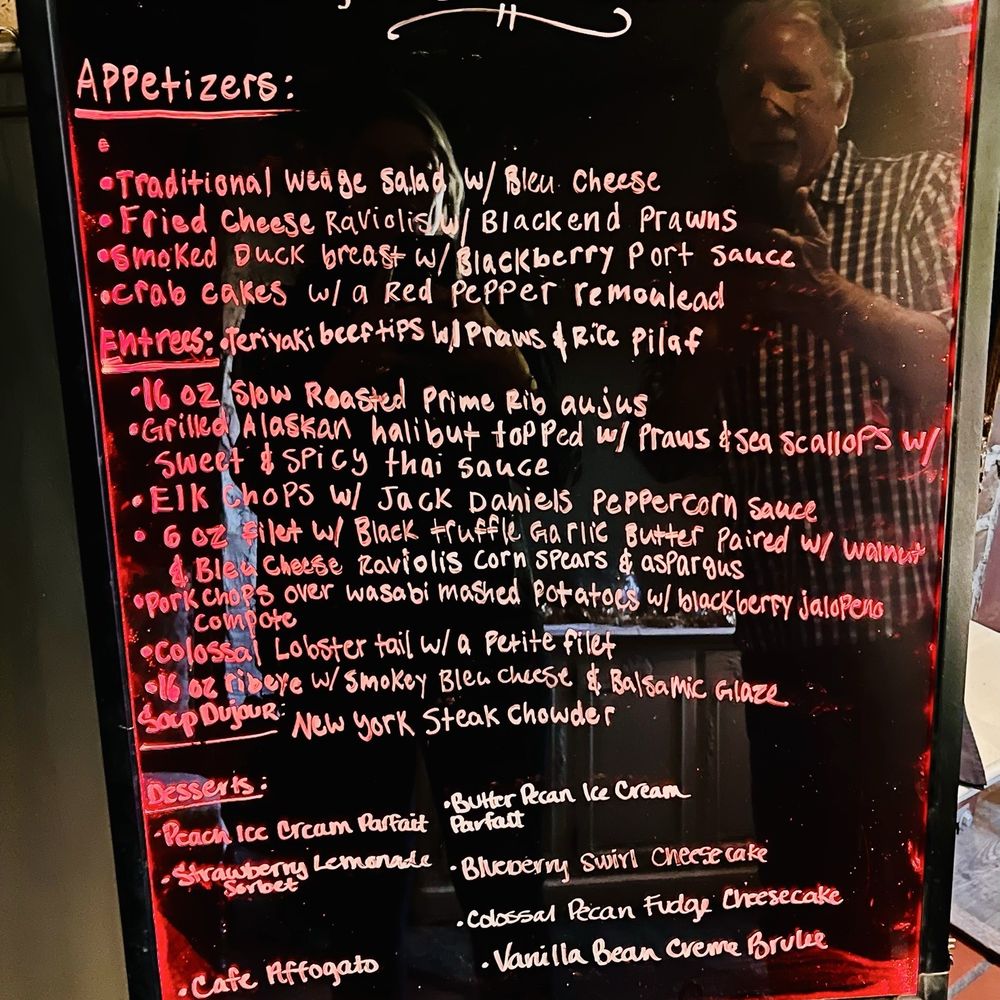 APPetizers:
•
• Traditional Weage Salad w/ Bleu Cheese
• Fried Cheese Raviolis w/ Blackend Prawns
• Smoked Duck breast w/ Blackberry Port Sauce
• Crab cakes w/ a Red Pepper remoulead
Entrees: • Teriyaki beef tips w/ Praws & Rice Pilaf
• 16 oz Slow Roasted Prime Rib aujus
• Grilled Alaskan halibut topped w/ Praws & Sea Scallops w/
Sweet & Spicy thai sauce
• Elk Chops w/ Jack Daniels Peppercorn Sauce
• 6 oz Filet w/ Black truffle Garlic Butter Paired w/ walnut
& Bleu Cheese Raviolis Corn Spears & aspargus
• Pork chops over wasabi mashed Potatoes w/ blackberry jalopeno
compote
• Colossal Lobster tail w/ a Petite filet
• 16 oz ribeye w/ Smokey Bleu cheese & Balsamic Glaze
Soup Dujour: New York Steak Chowder
Desserts:
• Butter Pecan Ice Cream
Parfait
• Peach Ice Cream Parfait
• Strawberry Lemonade
Sorbet
• Blueberry Swirl Cheesecake
• Colossal Pecan Fudge Cheesecake
• Cafe Affogato
• Vanilla Bean Creme Brulee